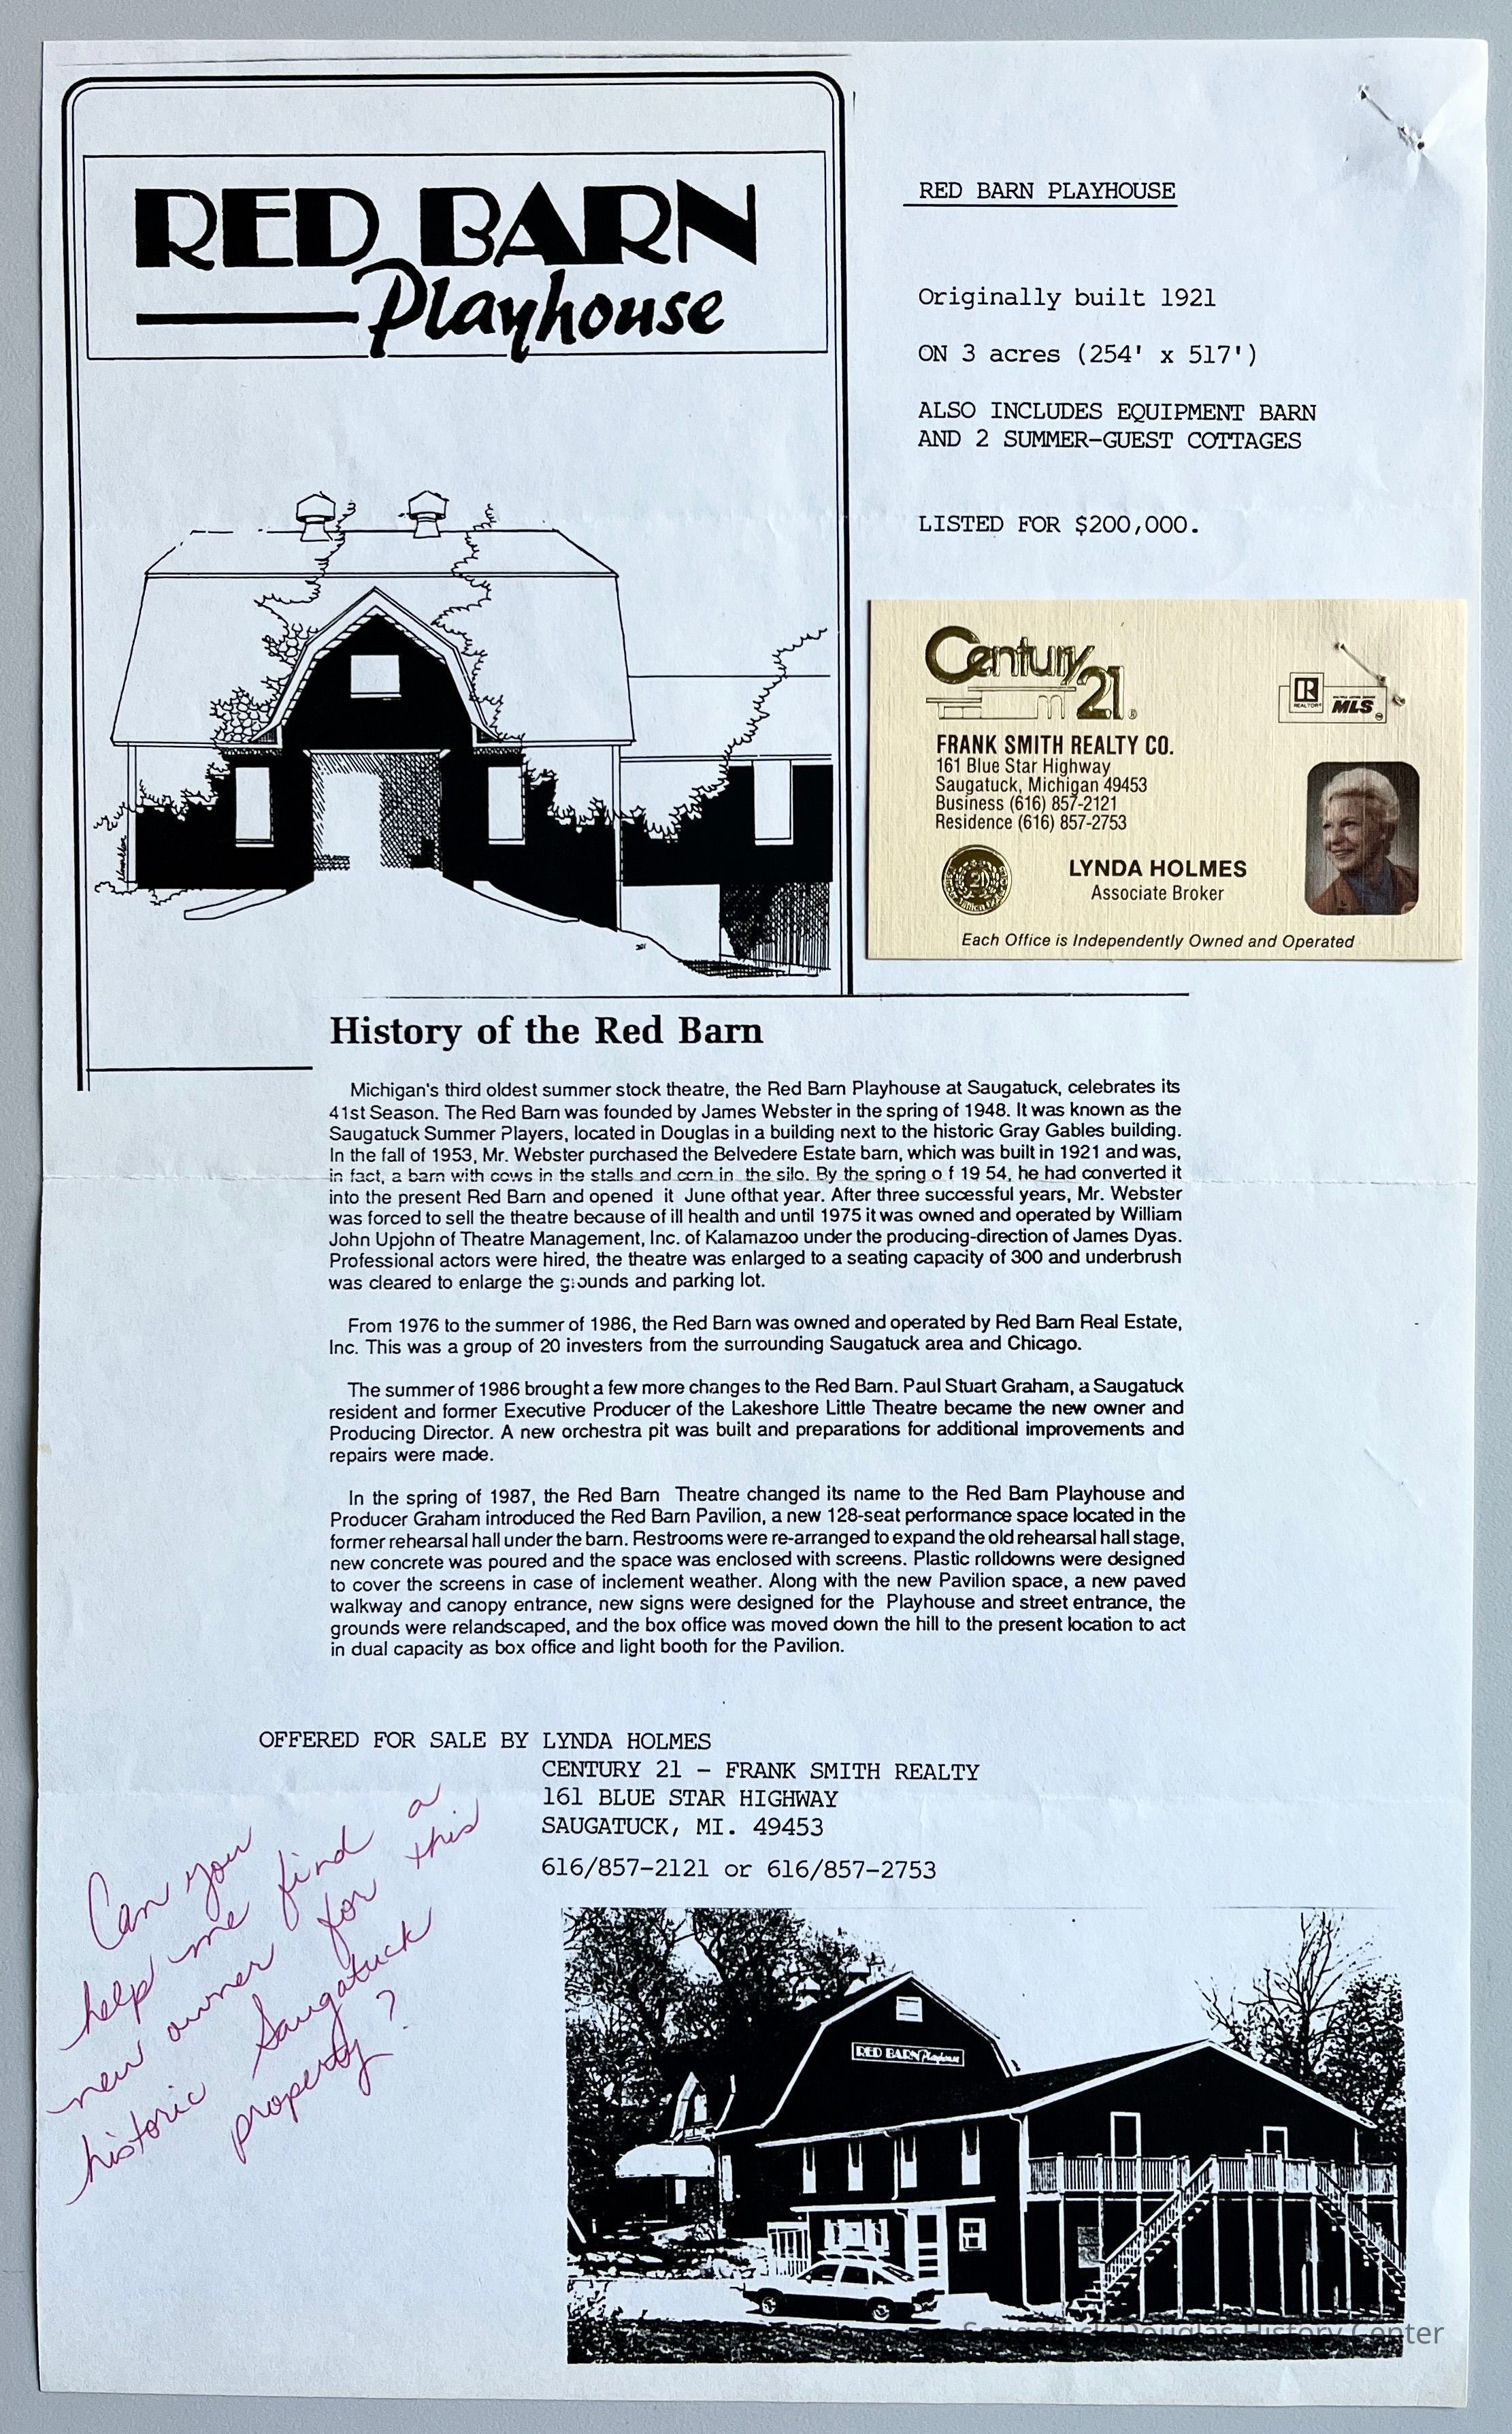 RED BARN
Playhouse
RED BARN PLAYHOUSE
Originally built 1921
ON 3 acres (254' x 517')
ALSO INCLUDES EQUIPMENT BARN
AND 2 SUMMER-GUEST COTTAGES
LISTED FOR $200,000.
Century 21®
REALTOR®
MLS
FRANK SMITH REALTY CO.
161 Blue Star Highway
Saugatuck, Michigan 49453
Business (616) 857-2121
Residence (616) 857-2753
LYNDA HOLMES
Associate Broker
Each Office is Independently Owned and Operated
History of the Red Barn
Michigan's third oldest summer stock theatre, the Red Barn Playhouse at Saugatuck, celebrates its
41st Season. The Red Barn was founded by James Webster in the spring of 1948. It was known as the
Saugatuck Summer Players, located in Douglas in a building next to the historic Gray Gables building.
In the fall of 1953, Mr. Webster purchased the Belvedere Estate barn, which was built in 1921 and was,
in fact, a barn with cows in the stalls and corn in the silo. By the spring o f 19 54, he had converted it
into the present Red Barn and opened it June ofthat year. After three successful years, Mr. Webster
was forced to sell the theatre because of ill health and until 1975 it was owned and operated by William
John Upjohn of Theatre Management, Inc. of Kalamazoo under the producing-direction of James Dyas.
Professional actors were hired, the theatre was enlarged to a seating capacity of 300 and underbrush
was cleared to enlarge the grounds and parking lot.
From 1976 to the summer of 1986, the Red Barn was owned and operated by Red Barn Real Estate,
Inc. This was a group of 20 investers from the surrounding Saugatuck area and Chicago.
The summer of 1986 brought a few more changes to the Red Barn. Paul Stuart Graham, a Saugatuck
resident and former Executive Producer of the Lakeshore Little Theatre became the new owner and
Producing Director. A new orchestra pit was built and preparations for additional improvements and
repairs were made.
In the spring of 1987, the Red Barn Theatre changed its name to the Red Barn Playhouse and
Producer Graham introduced the Red Barn Pavilion, a new 128-seat performance space located in the
former rehearsal hall under the barn. Restrooms were re-arranged to expand the old rehearsal hall stage,
new concrete was poured and the space was enclosed with screens. Plastic rolldowns were designed
to cover the screens in case of inclement weather. Along with the new Pavilion space, a new paved
walkway and canopy entrance, new signs were designed for the Playhouse and street entrance, the
grounds were relandscaped, and the box office was moved down the hill to the present location to act
in dual capacity as box office and light booth for the Pavilion.
OFFERED FOR SALE BY LYNDA HOLMES
CENTURY 21 - FRANK SMITH REALTY
161 BLUE STAR HIGHWAY
SAUGATUCK, MI. 49453
616/857-2121 or 616/857-2753
Can you
help me find a
new owner for this
historic Saugatuck
property?
RED BARN Playhouse
Saugatuck-Douglas History Center